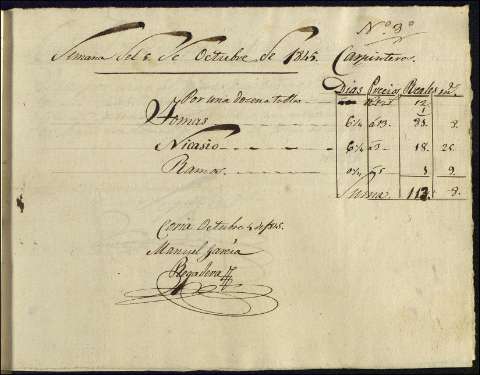 Nº 3º
Semana del 5 de Octubre de 1845. Carpinteros.
Dias Precios Reales mrs.
Por una dozena tablas 12
Tomas 6¼ a 13 8.
Nicasio 6¼ a 3 18. 25
Ramos 5 9
Suma 113 8.
Coria Octubre 4 de 1845.
Manuel Garcia
Regadera